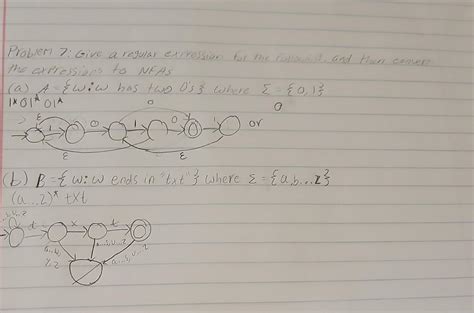 Problem 7: Give a regular expression for the following and then conver
the expressions to NFAs
(a) A = {w : w has two 0's} where Σ = {0,1}
1*01*01*
0
0
ε
1
0
1
0
1
or
ε
ε
(b) B = {w : w ends in "txt"} where Σ = {a,b...z}
(a...z)* txt
t
x
t